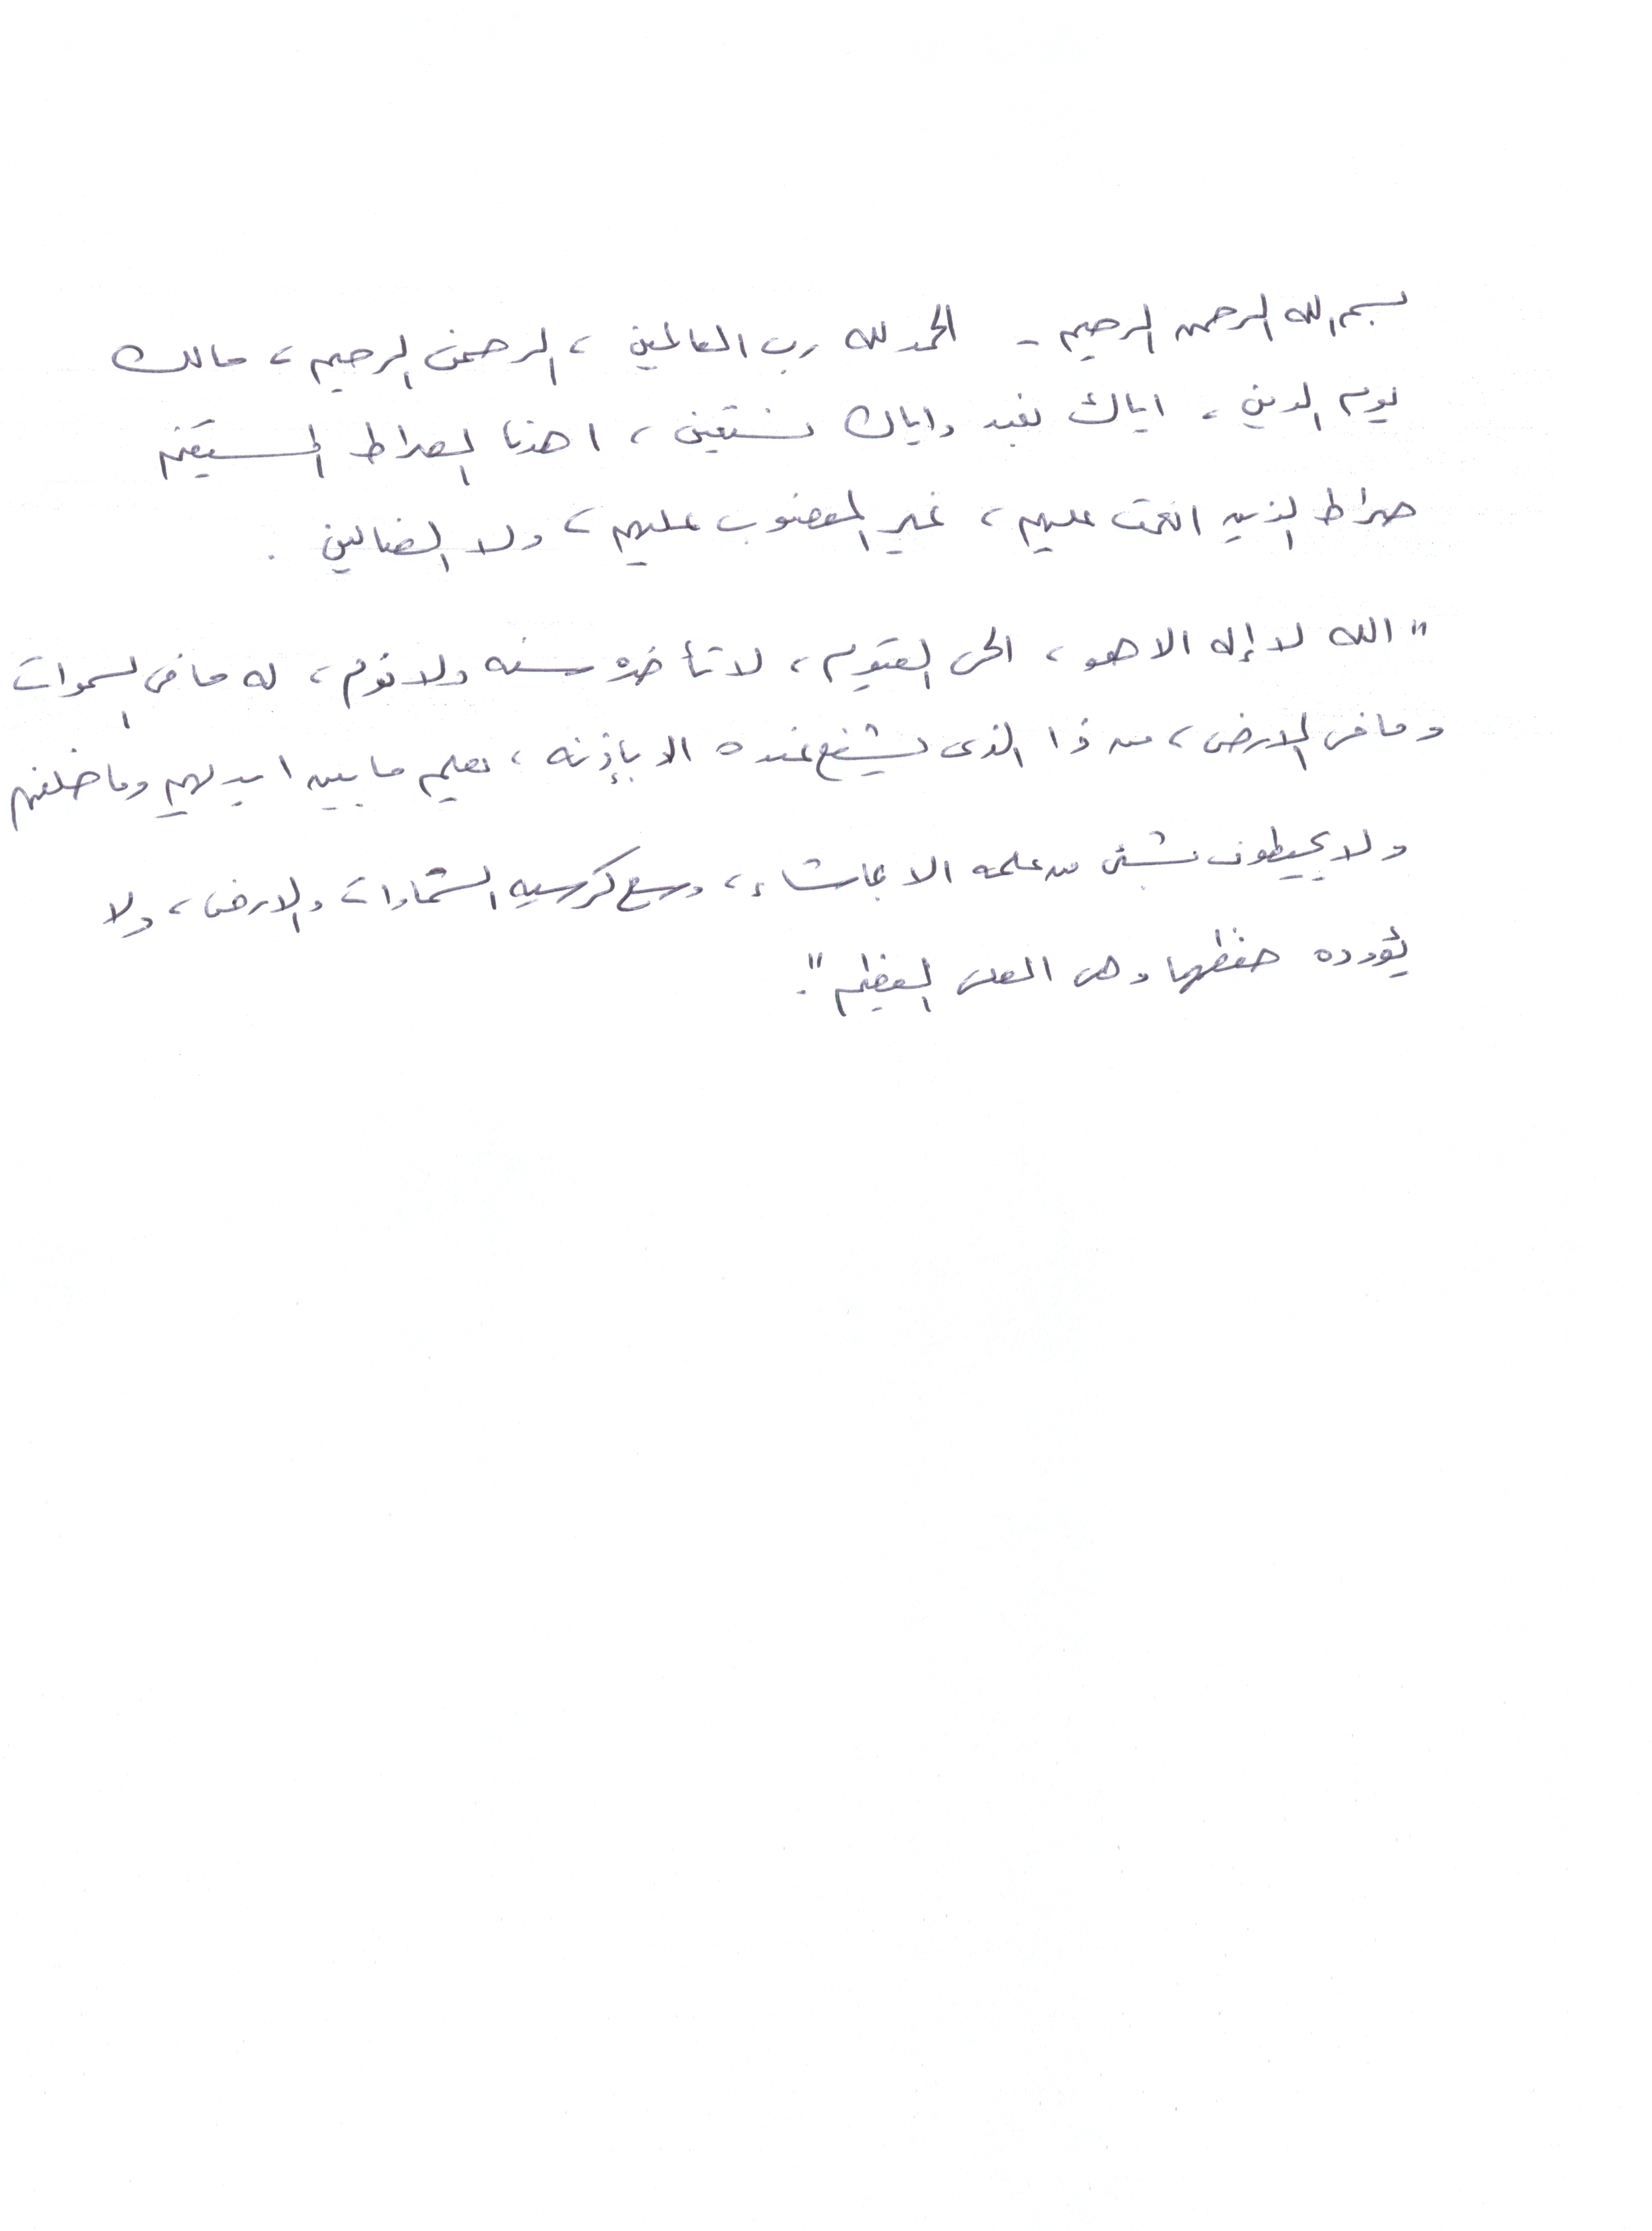 بسم الله الرحمن الرحيم - الحمد لله رب العالمين ، الرحمن الرحيم ، مالك
يوم الدين ، اياك نعبد واياك نستعين ، اهدنا الصراط المستقيم
صراط الذين انعمت عليهم ، غير المغضوب عليهم ، ولا الضالين .
" الله لا إله الا هو ، الحى القيوم ، لا تأخذه سنه ولا نوم ، له ما فى السموات
وما فى الارض ، من ذا الذى يشفع عنده الا بإذنه ، يعلم ما بين ايديهم وما خلفهم
ولا يحيطون بشئ من علمه الا بما شاء ، وسع كرسيه السماوات والارض ، ولا
يؤوده حفظهما وهى العلى العظيم " .